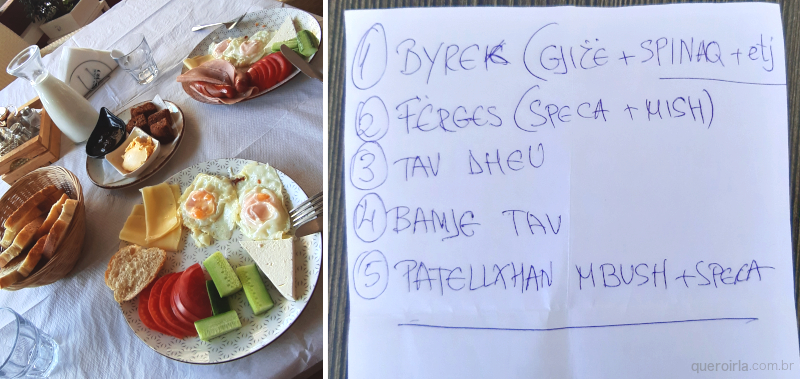 1 BYREK (GJIZË + SPINAQ + etj
2 FËRGES (SPECA + MISH)
3 TAV DHEU
4 BAMJE TAV
5 PATELLXHAN MBUSH + SPECA
queroirla.com.br